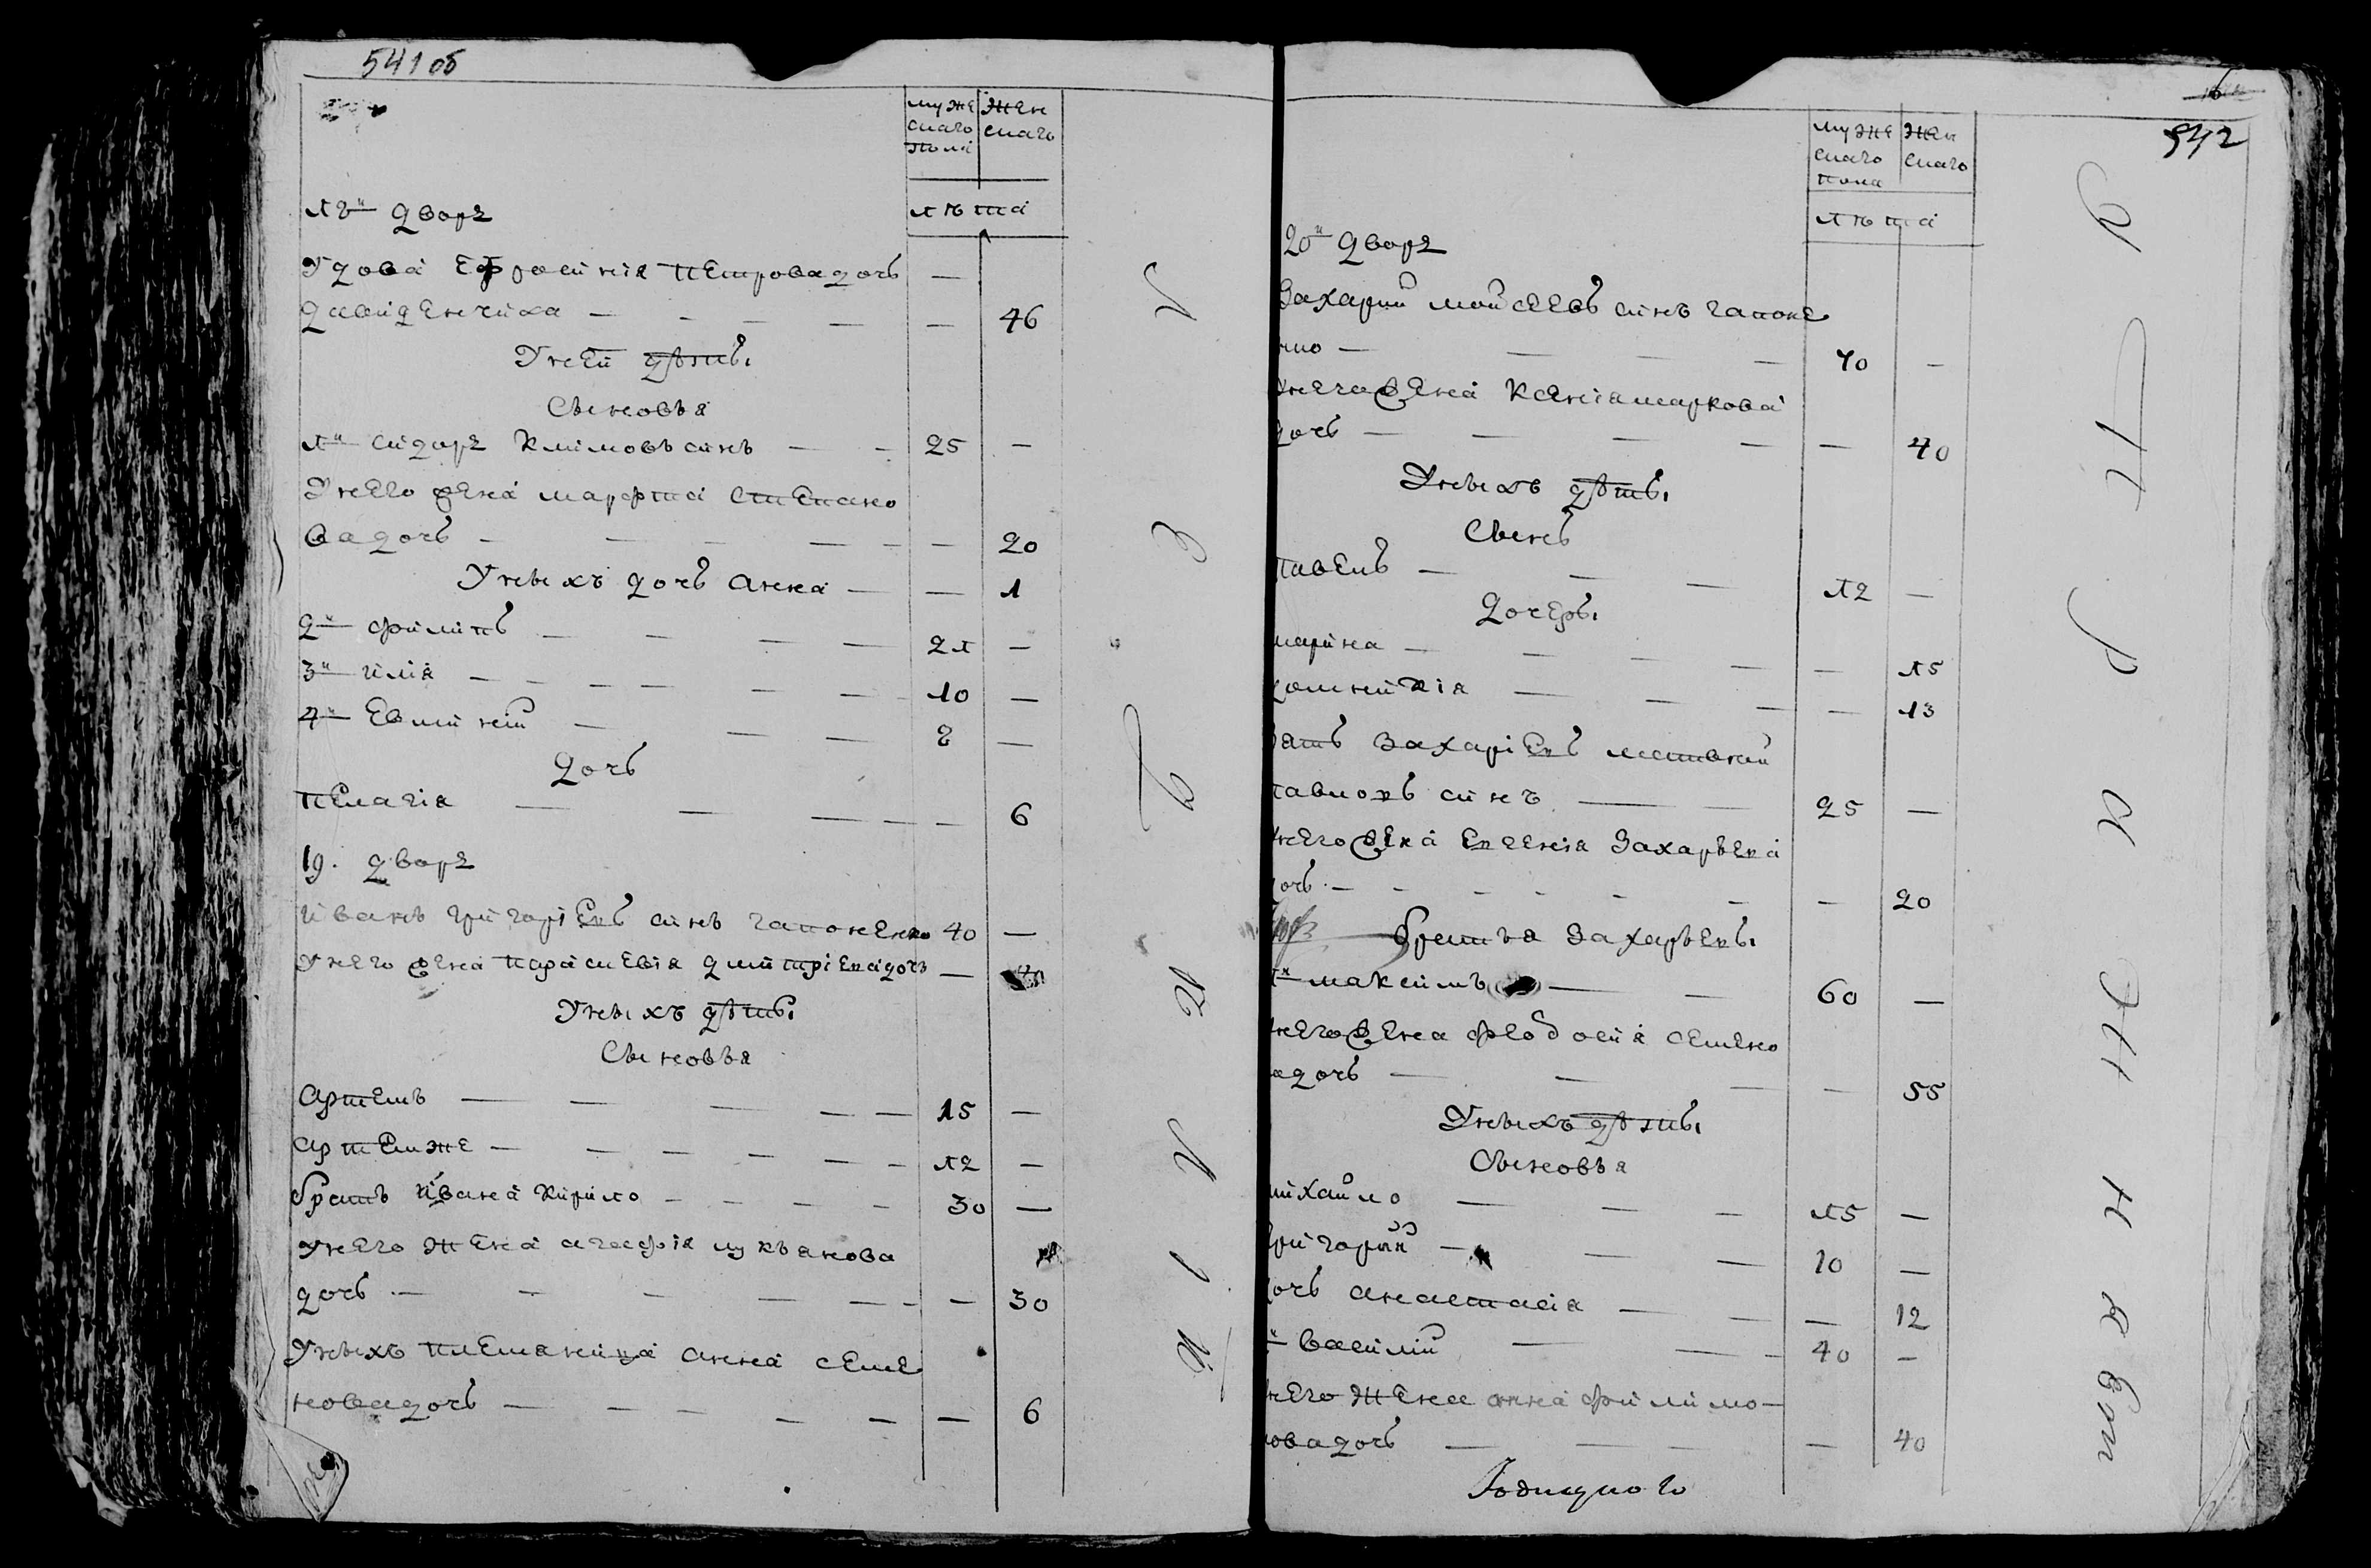 541 об
муже
скаго
пола
жен
скаго
лѣта
18й дворъ
Удова Ефросинія Петрова дочь —
давиденчиха — 46
У неи дѣти
Сыновья
1й Сидоръ Климовъ синъ — 25 —
У него жена марфта Степано
ва дочь — 20
У ныхъ дочь Анна — 1
2й Филипъ — 21 —
3й Илія — 10 —
4й Евмнній — 8 —
Дочь
Пелагія — 6
19. дворъ
Иванъ Григоріевъ синъ гапоненко 40 —
У него жена Параскевія Дмитріева дочь —
У ныхъ дѣти
Сыновья
Артемъ — 15 —
Артемже — 12 —
братъ Ивана Кирило — 30 —
У него жена агафія лукьянова
дочь — 30
У ныхъ племяница Анна Семе
нова дочь — 6
6
542
муже
скаго
пола
жен
скаго
лѣта
20й дворъ
Захарий мойсеевъ синъ гапоне
нко — 40 —
него жена Ксеніа маркова
дочь — 40
У ныхъ дѣти
Сынъ
Павелъ — 12 —
Дочери
марина — 15
домникія — 13
зять Захаріевъ матвѣй
павловъ синъ — 25 —
него жена Евгенія Захарьева
дочь — 20
братья Захарьевы
1й максимъ — 60 —
него жена феодосия семено
ва дочь — 55
У ныхъ дѣти
Сыновья
михайло — 15 —
григорий — 10 —
дочь анастасія — 12
василий — 40 —
него жена анна филимо-
нова дочь — 40